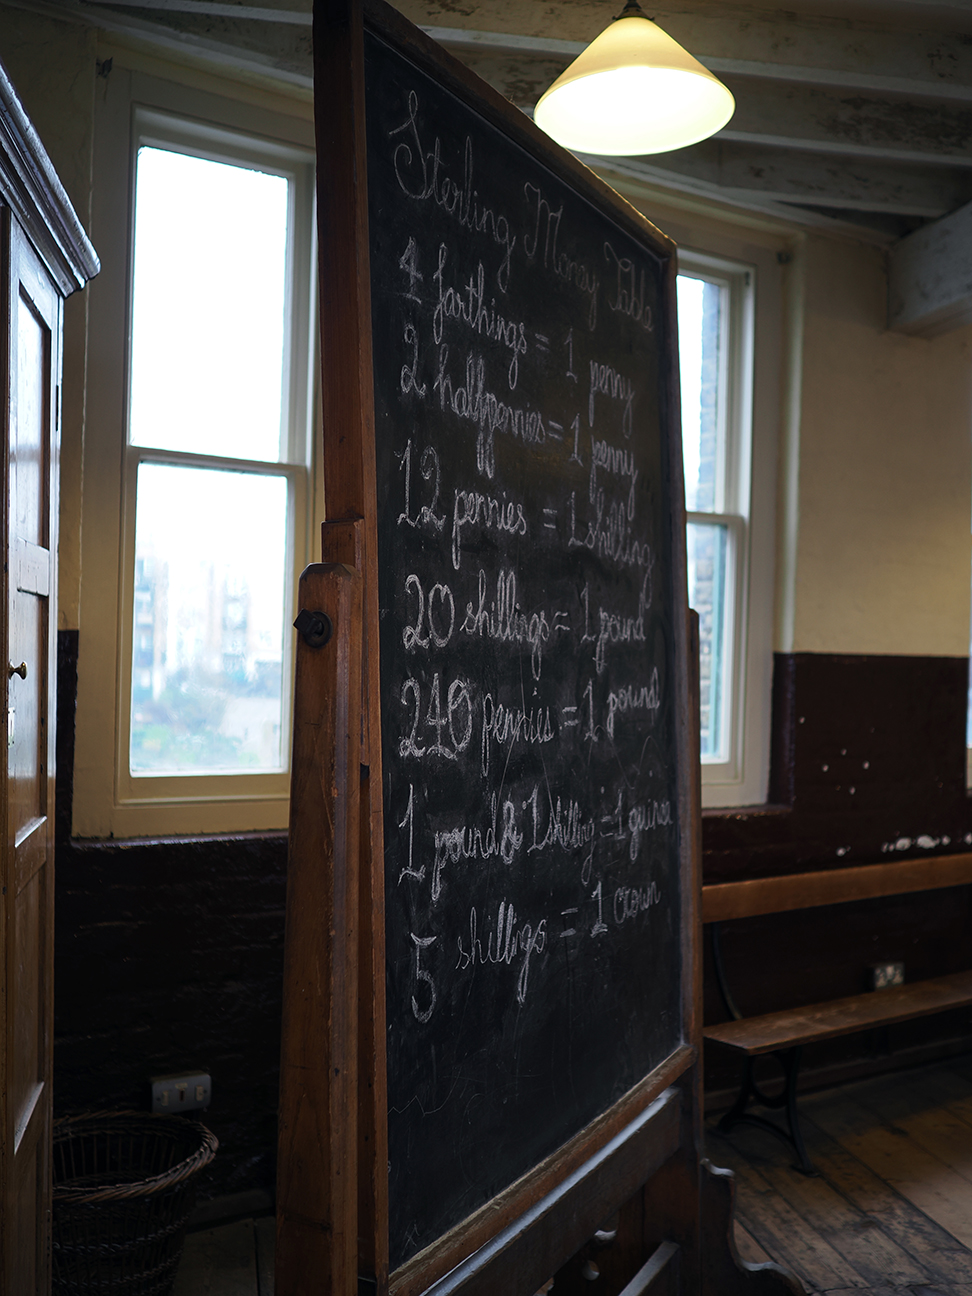 Sterling Money Table
4 farthings = 1 penny
2 halfpennies = 1 penny
12 pennies = 1 shilling
20 shillings = 1 pound
240 pennies = 1 pound
1 pound & 1 shilling = 1 guinea
5 shillings = 1 crown